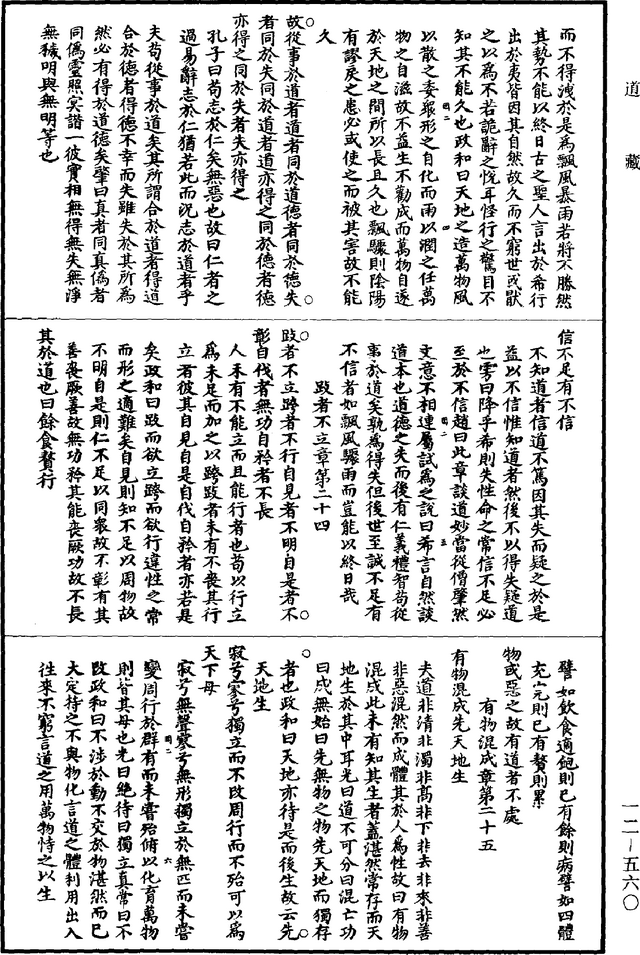 道藏
而不得洩於是為飄風暴雨若將不勝然
其勢不能以終日古之聖人言出於希行
出於夷皆因其自然故久而不窮世或獸
之以為不若詭辭之悅耳怪行之驚目不
知其不能久也政和曰天地之造萬物風
以散之委衆形之自化而雨以潤之任萬
物之自滋故不益生不勸成而萬物自遂
於天地之間所以長且久也飄驟則陰陽
有謬戾之患必或使之而被其害故不能
久
故從事於道者道者同於道德者同於德失
者同於失同於道者道亦得之同於德者德
亦得之同於失者失亦得之
孔子曰苟志於仁矣無惡也故曰仁者之
過易辭志於仁猶若此而況志於道者乎
夫苟從事於道矣其所謂合於道者得道
合於德者得德不幸而失雖失於其所為
然必有得於道德矣肇曰真者同真偽者
同偽靈照冥諧一彼實相無得無失無淨
無穢明與無明等也
信不足有不信
不知道者信道不篤因其失而疑之於是
益以不信惟知道者然後不以得失疑道
也雱曰降乎希則失性命之常信不足必
至於不信趙曰此章談道妙當從僧肇然
文意不相連屬試為之說曰希言自然談
道本也道德之失而後有仁義禮智苟從
事於道矣孰為得失但後世至誠不足有
不信者如飄風驟雨而豈能以終日哉
跂者不立章第二十四
跂者不立跨者不行自見者不明自是者不
彰自伐者無功自矜者不長
人未有不能立而且能行者也苟以行立
為未足而加之以跨跂者未有不喪其行
立者彼其自見自是自伐自矜者亦若是
矣政和曰跂而欲立跨而欲行違性之常
而形之適難矣自見則知不足以周物故
不明自是則仁不足以同衆故不彰有其
善喪厥善故無功矜其能喪厥功故不長
其於道也曰餘食贅行
譬如飲食適飽則已有餘則病譬如四體
充完則已有贅則累
物或惡之故有道者不處
有物混成章第二十五
有物混成先天地生
夫道非清非濁非高非下非去非來非善
非惡混然而成體其於人為性故曰有物
混成此未有知其生者蓋湛然常存而天
地生於其中耳光曰道不可分曰混亡功
曰成無始曰先無物之物先天地而獨存
者也政和曰天地亦待是而後生故云先
天地生
寂兮寥兮獨立而不改周行而不殆可以為
天下母
寂兮無聲寥兮無形獨立於無匹而未嘗
變周行於群有而未嘗殆俯以化育萬物
則皆其母也光曰絕待曰獨立真常曰不
改政和曰不涉於動不交於物湛然而已
大定持之不與物化言道之體利用出入
往來不窮言道之用萬物恃之以生
一二—五六〇